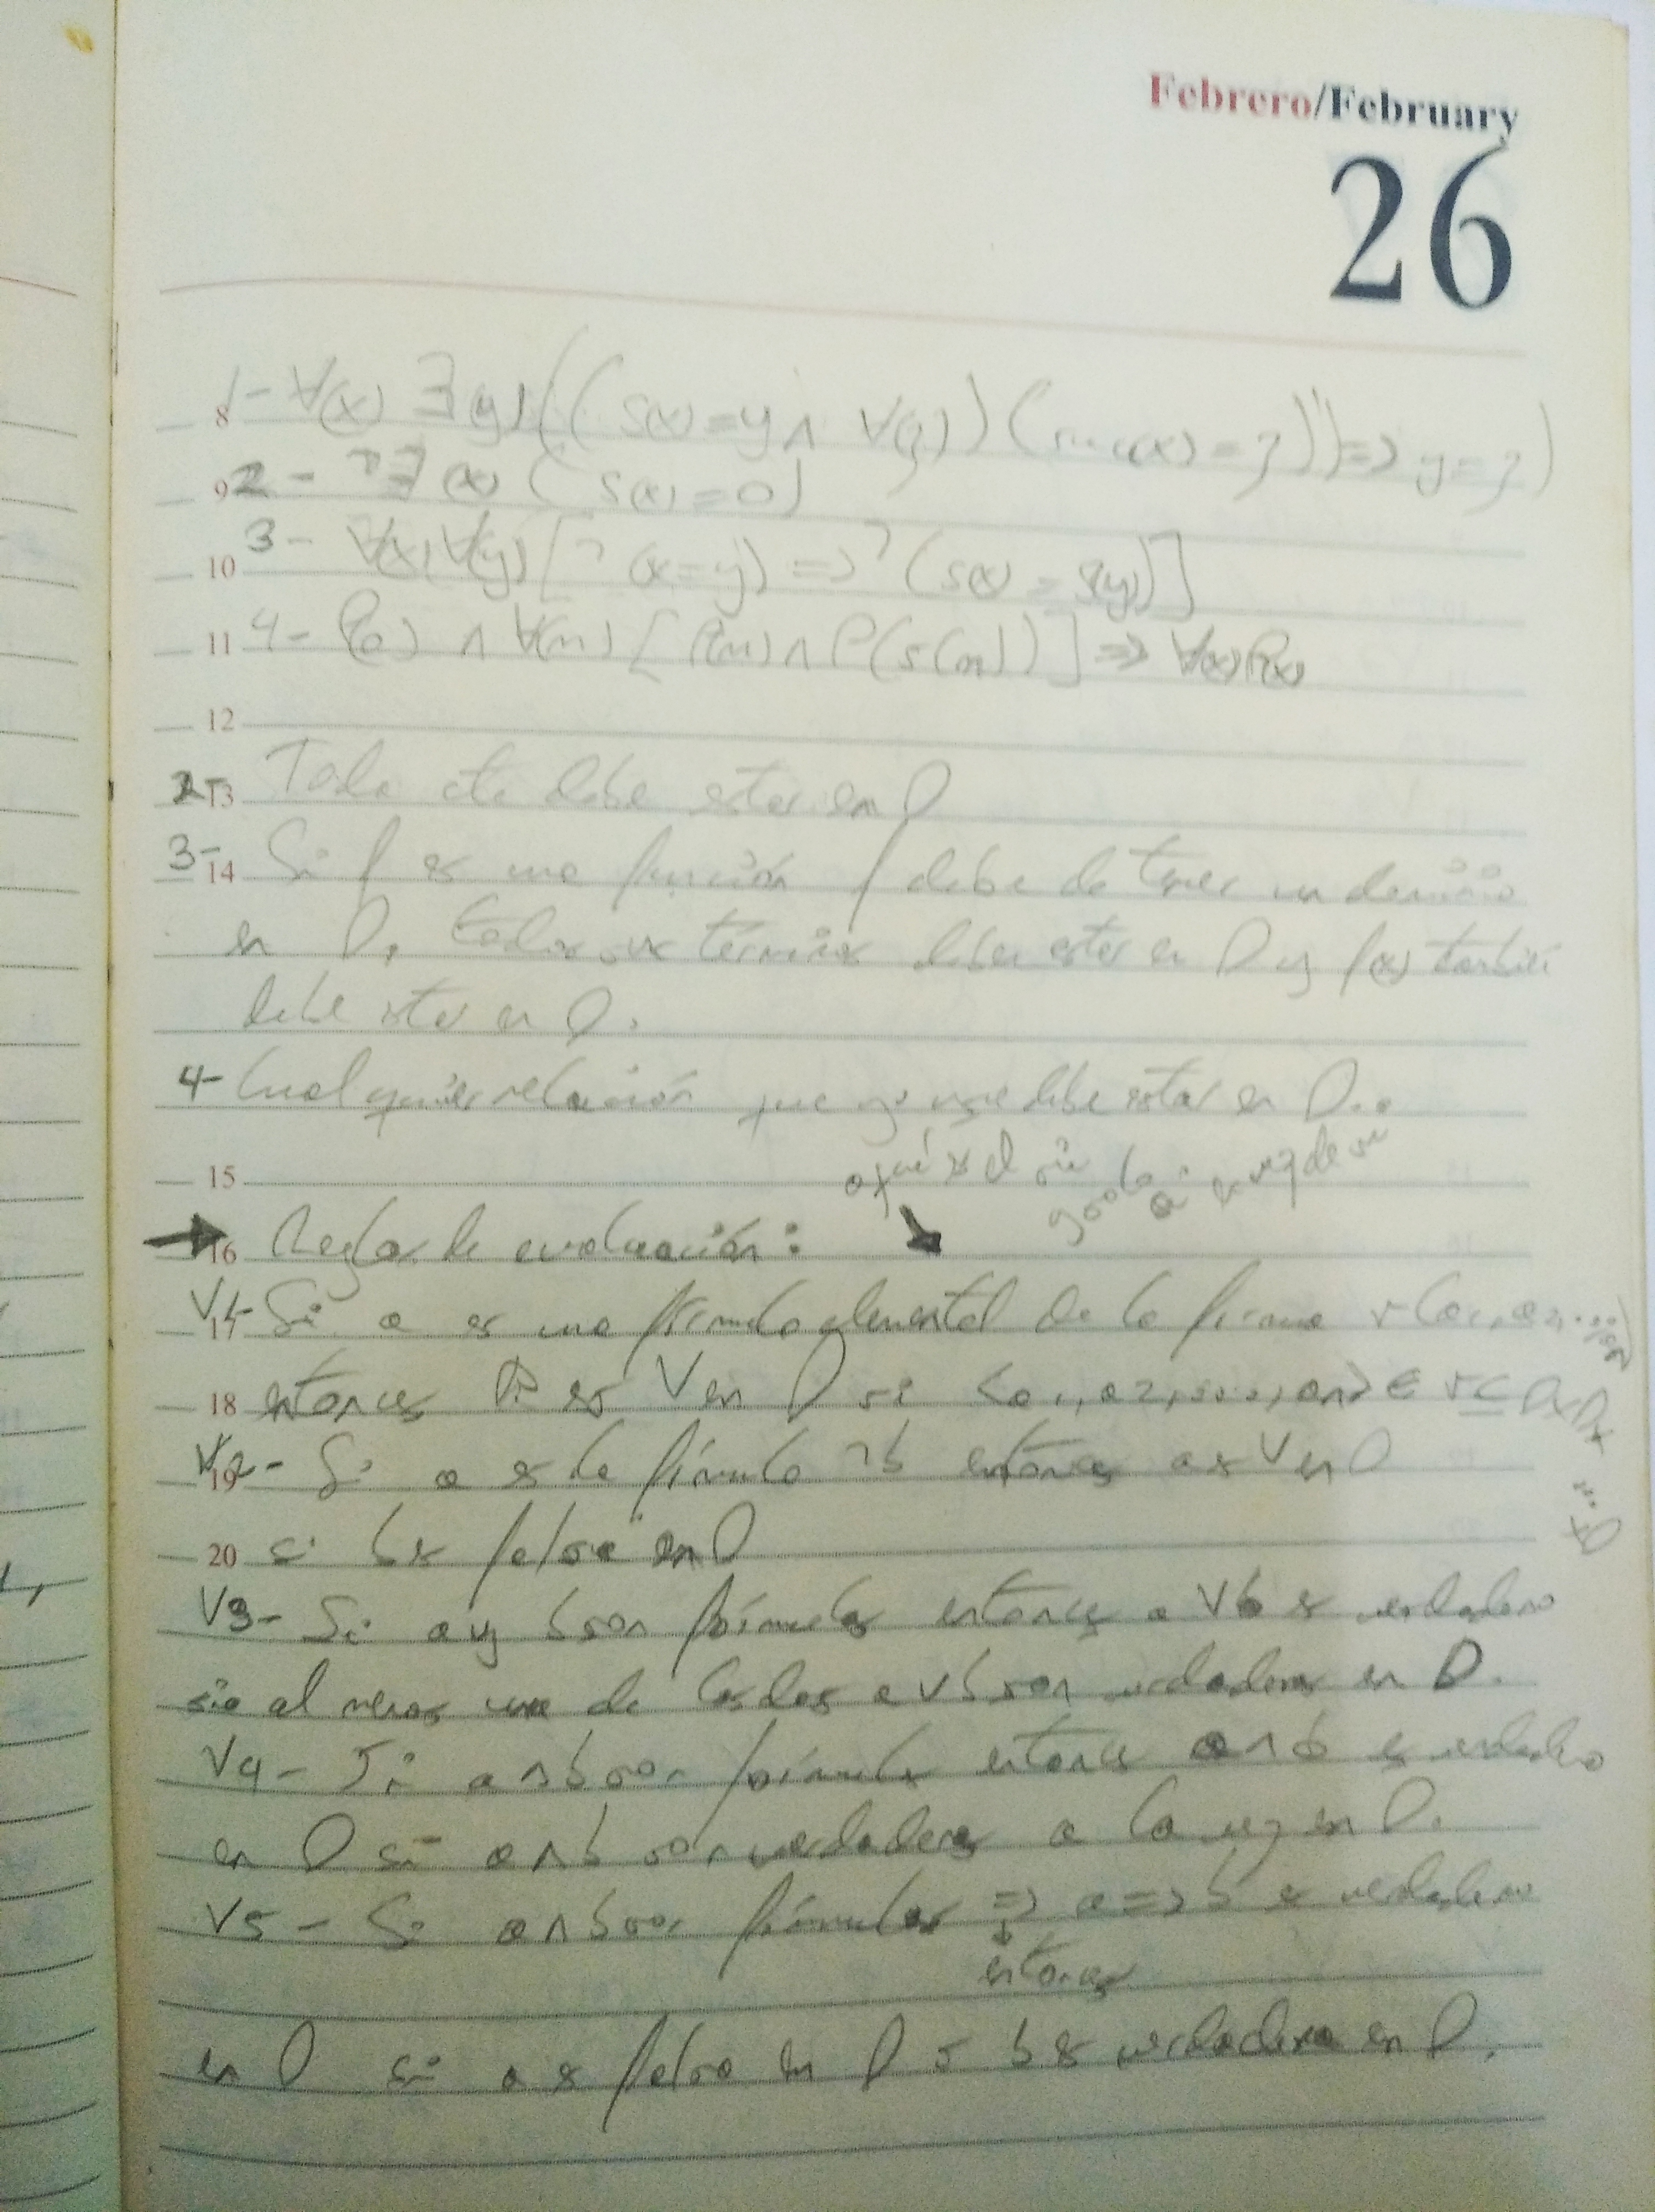 Febrero/February
26
8 1- ∀(x) ∃(y) ((S(x)=y ∧ ∀(z)) (suc(x)=z)) => y=z)
9 2- ¬∃(x) (S(x)=0)
10 3- ∀(x) ∀(y) [¬(x=y) => ¬(S(x)=S(y))]
11 4- P(0) ∧ ∀(n) [P(n) ∧ P(S(n))] => ∀(x) P(x)
12
13 2- Todo cte debe estar en D
14 3- Si f es una función f debe de tener un dominio
en D, todos sus términos deben estar en D y f(x) también
debe estar en D.
4- Cualquier relación que yo use debe estar en D..
15
aquí es el si
en vez de
16 → Reglas de evaluación:
17 V1- Si a es una fórmula elemental de la forma r(a1, a2,...,an)
18 entonces es V en D si <a1, a2, ..., an> ∈ r ⊆ DxDx
...xD
19 V2- Si a es la fórmula ¬b entonces a es V en D
20 si b es falsa en D
V3- Si a y b son fórmulas entonces a V b es verdadero
si al menos una de las dos a v b son verdaderas en D.
V4- Si a ∧ b son fórmulas entonces a ∧ b es verdadero
en D si a ∧ b son verdaderas a la vez en D.
V5- Si a ∧ b son fórmulas => a => b es verdadero
entonces
en D si a es falsa en D o b es verdadera en D.